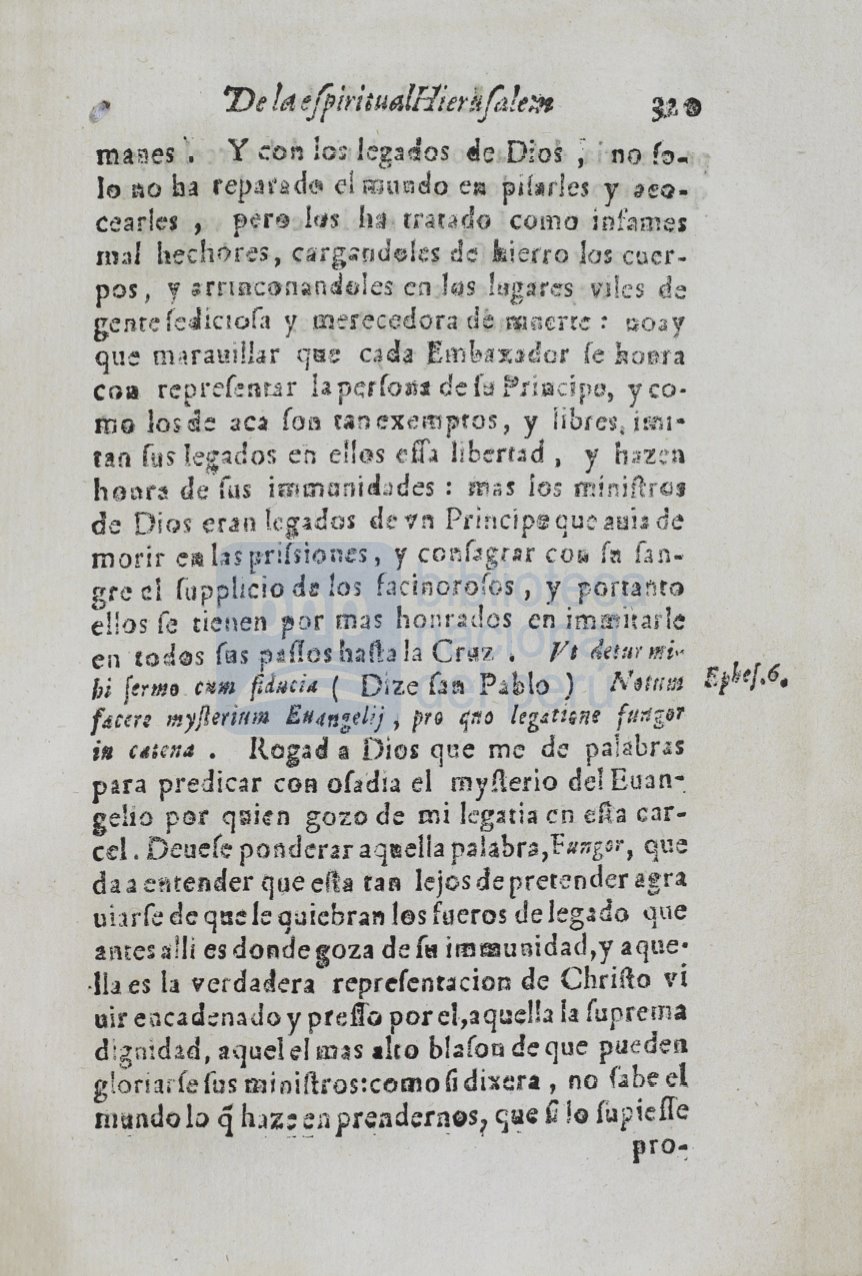 De la eſpiritual Hieruſalem 320
manes. Y con los legados de Dios, no ſo-
lo no ha reparado el mundo en piſarles y aco-
cearles, pero los ha tratado como infames
mal hechores, cargandoles de hierro los cuer-
pos, y arrinconandoles en los lugares viles de
gente ſedicioſa y merecedora de muerte: no ay
que marauillar que cada Embaxador ſe honra
con repreſentar la perſona de ſu Principe, y co-
mo los de aca ſon tan exemptos, y libres, imi-
tan ſus legados en ellos eſſa libertad, y hazen
honra de ſus immunidades: mas los miniſtros
de Dios eran legados de vn Principe que auia de
morir en las priſsiones, y conſagrar con ſu ſan-
gre el ſupplicio de los facinoroſos, y portanto
ellos ſe tienen por mas honrados en immitarle
en todos ſus paſſos haſta la Cruz. Vt detur mi-
hi ſermo cum fiducia (Dize ſan Pablo) Notum
Epheſ.6.
facere myſterium Euangelij, pro quo legatione fungor
in catena. Rogad a Dios que me de palabras
para predicar con oſadia el myſterio del Euan-
gelio por quien gozo de mi legatia en eſta car-
cel. Deueſe ponderar aquella palabra, Fungor, que
da a entender que eſta tan lejos de pretender agra
uiarſe de que le quiebran los fueros de legado que
antes alli es donde goza de ſu immunidad, y aque-
lla es la verdadera repreſentacion de Chriſto vi
uir encadenado y preſſo por el, aquella la ſuprema
dignidad, aquel el mas alto blaſon de que pueden
gloriarſe ſus miniſtros: como ſi dixera, no ſabe el
mundo lo q̃ haze en prendernos, que ſi lo ſupieſſe
pro-